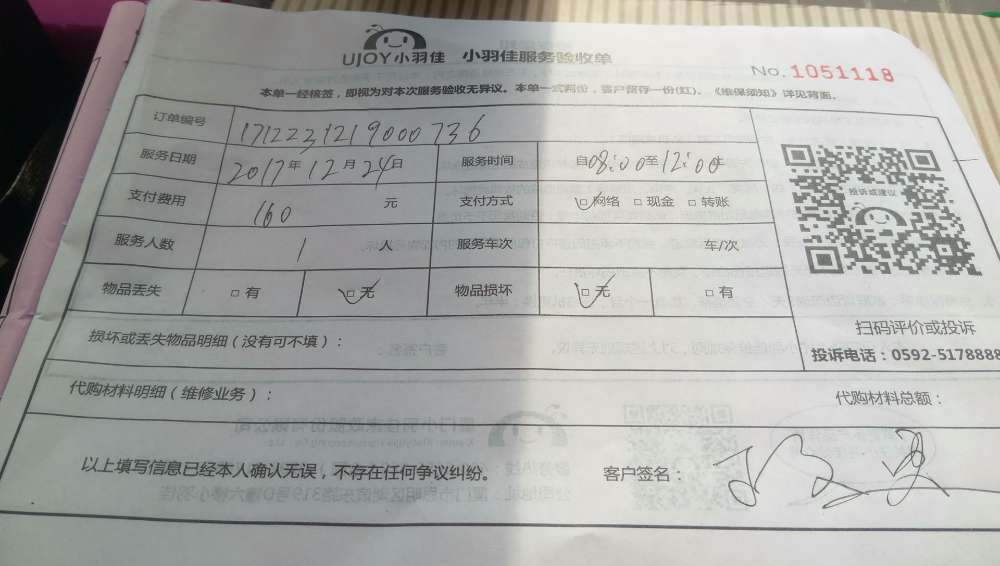 UJOY小羽佳 小羽佳服务验收单
No.1051118
本单一经核签，即视为对本次服务验收无异议。本单一式两份，客户留存一份(红)。《维保须知》详见背面。
订单编号 1712231219000736
服务日期 2017年12月24日 服务时间 自08:00至12:00止
支付费用 160 元 支付方式 □网络 □现金 □转账
服务人数 1 人 服务车次 车/次
物品丢失 □有 □无 物品损坏 □无 □有
投诉或建议
扫码评价或投诉
投诉电话：0592-5178888
损坏或丢失物品明细（没有可不填）：
代购材料明细（维修业务）： 代购材料总额：
以上填写信息已经本人确认无误，不存在任何争议纠纷。 客户签名：